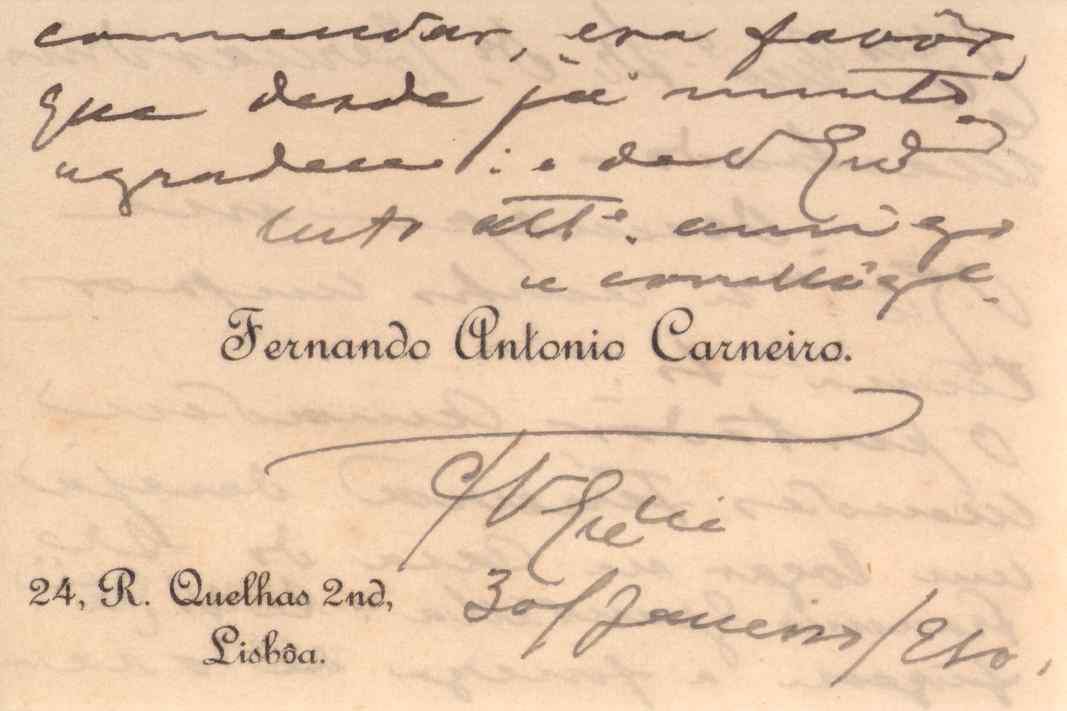 commendar, era favôr,
que desde já muito
agradece: e de V Exª
muto attº. amigo
e collega
Fernando Antonio Carneiro.
C/V Exª
24, R. Quelhas 2nd,
30/Janeiro/
Lisbôa.